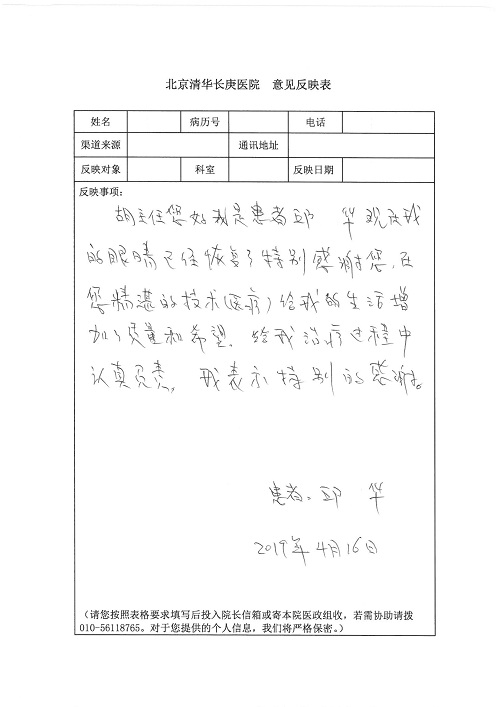 北京清华长庚医院 意见反映表
姓名 病历号 电话
渠道来源 通讯地址
反映对象 科室 反映日期
反映事项:
胡主任您好我是患者邱 华现在我
的眼睛已经恢复了特别感谢您,在
您精湛的技术(医疗)给我的生活增
加了质量和希望、给我治疗过程中
认真负责,我表示特别的感谢。
患者:邱 华
2019年4月16日
(请您按照表格要求填写后投入院长信箱或寄本院医政组收,若需协助请拨
010-56118765。对于您提供的个人信息,我们将严格保密。)